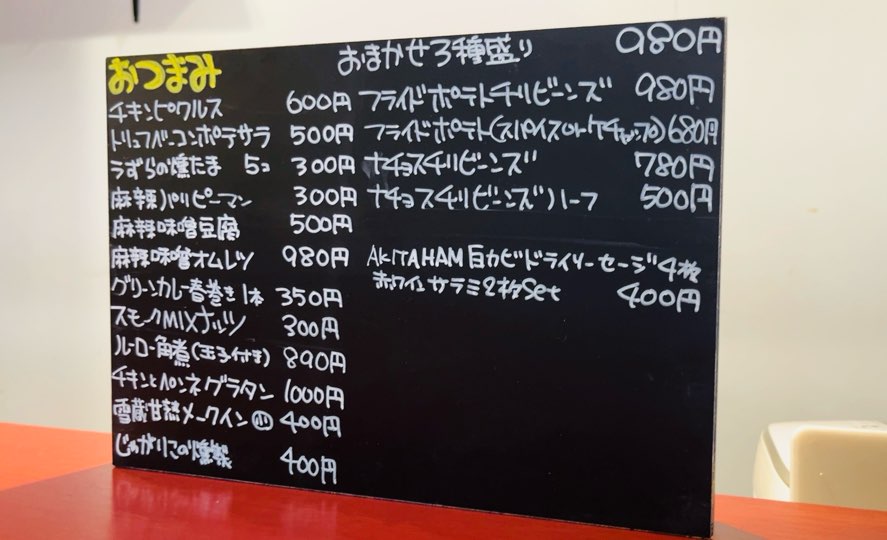 おつまみ
チキンピクルス 600円
トリュフベーコンポテサラ 500円
うずらの燻たま 5コ 300円
麻辣パリピーマン 300円
麻辣味噌豆腐 500円
麻辣味噌オムレツ 980円
グリーンカレー春巻き 1本 350円
スモークMIXナッツ 300円
ルーロー角煮(玉子付き) 890円
チキンとペンネグラタン 1000円
雪蔵甘熟メークイン㊥ 400円
じゃがりこの燻製 400円
おまかせ3種盛り 980円
フライドポテトチリビーンズ 980円
フライドポテト(スパイスorケチャップ) 680円
ナチョスチリビーンズ 780円
ナチョスチリビーンズハーフ 500円
AKITAHAM 白カビドライソーセージ4枚
赤ワインサラミ2枚Set 400円